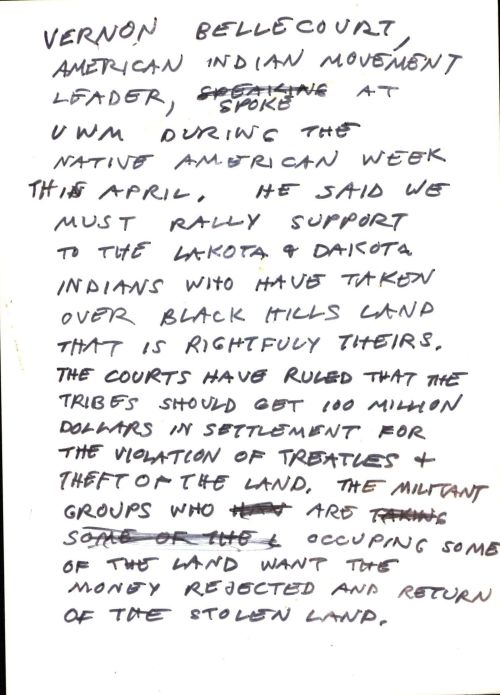 VERNON BELLECOURT,
AMERICAN INDIAN MOVEMENT
LEADER, SPEAKING SPOKE AT
UWM DURING THE
NATIVE AMERICAN WEEK
THIS APRIL. HE SAID WE
MUST RALLY SUPPORT
TO THE LAKOTA & DAKOTA
INDIANS WHO HAVE TAKEN
OVER BLACK HILLS LAND
THAT IS RIGHTFULY THEIRS.
THE COURTS HAVE RULED THAT THE
TRIBES SHOULD GET 100 MILLION
DOLLARS IN SETTLEMENT FOR
THE VIOLATION OF TREATIES +
THEFT OF THE LAND. THE MILITANT
GROUPS WHO ARE TAKING
SOME OF THE OCCUPING SOME
OF THE LAND WANT THE
MONEY REJECTED AND RETURN
OF THE STOLEN LAND.